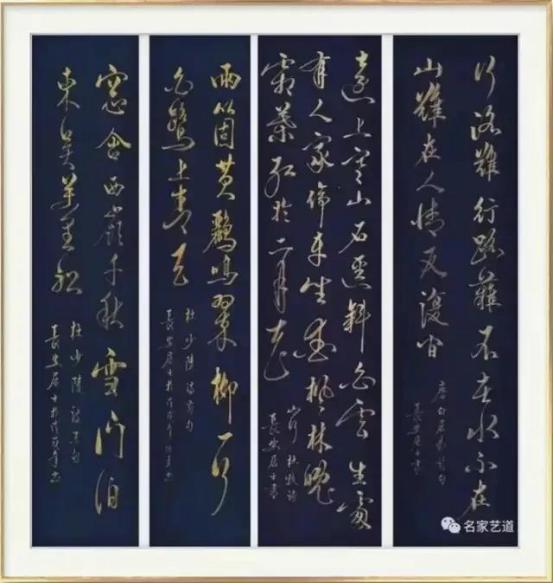 行路難行路難不在水不在
山難在人情反復間
唐白居易詩句
長安居士書
遠上寒山石徑斜白雲生處
有人家停車坐愛楓林晚
霜葉紅於二月花
杜牧詩
長安居士書
兩箇黃鸝鳴翠柳一行
白鷺上青天
杜少陵詩句
長安居士於戊戌年
窓含西嶺千秋雪門泊
東吳萬里船
杜少陵詩句
長安居士於戊戌年
名家艺道